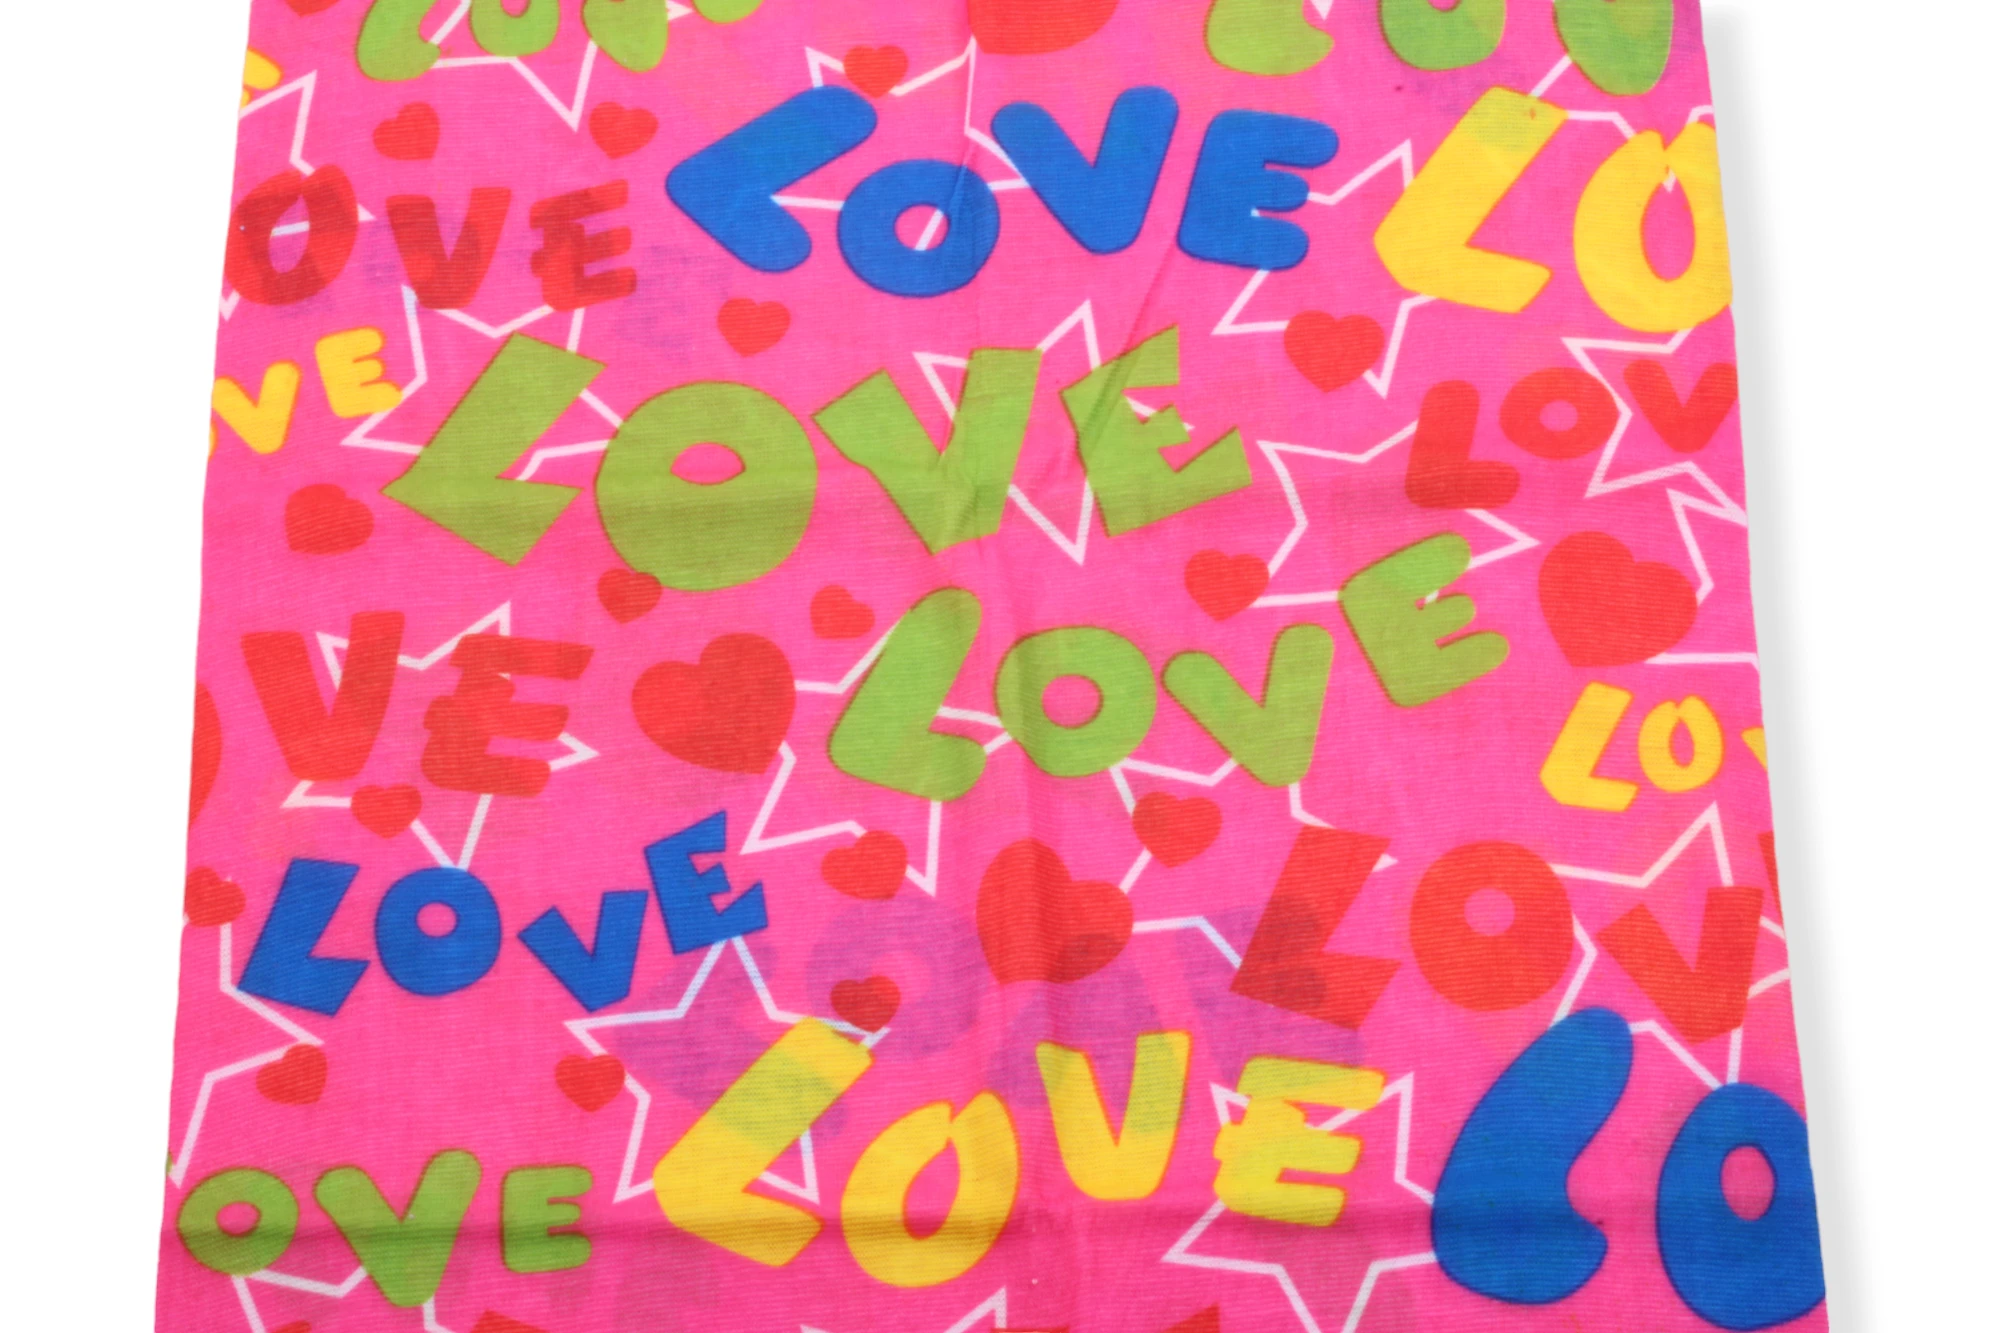 LOVE
LOV
OVE
LOVE
LO
VE
LOVE
LOV
LOVE
VE
LO
LOVE
LOV
LOVE
LO
OVE